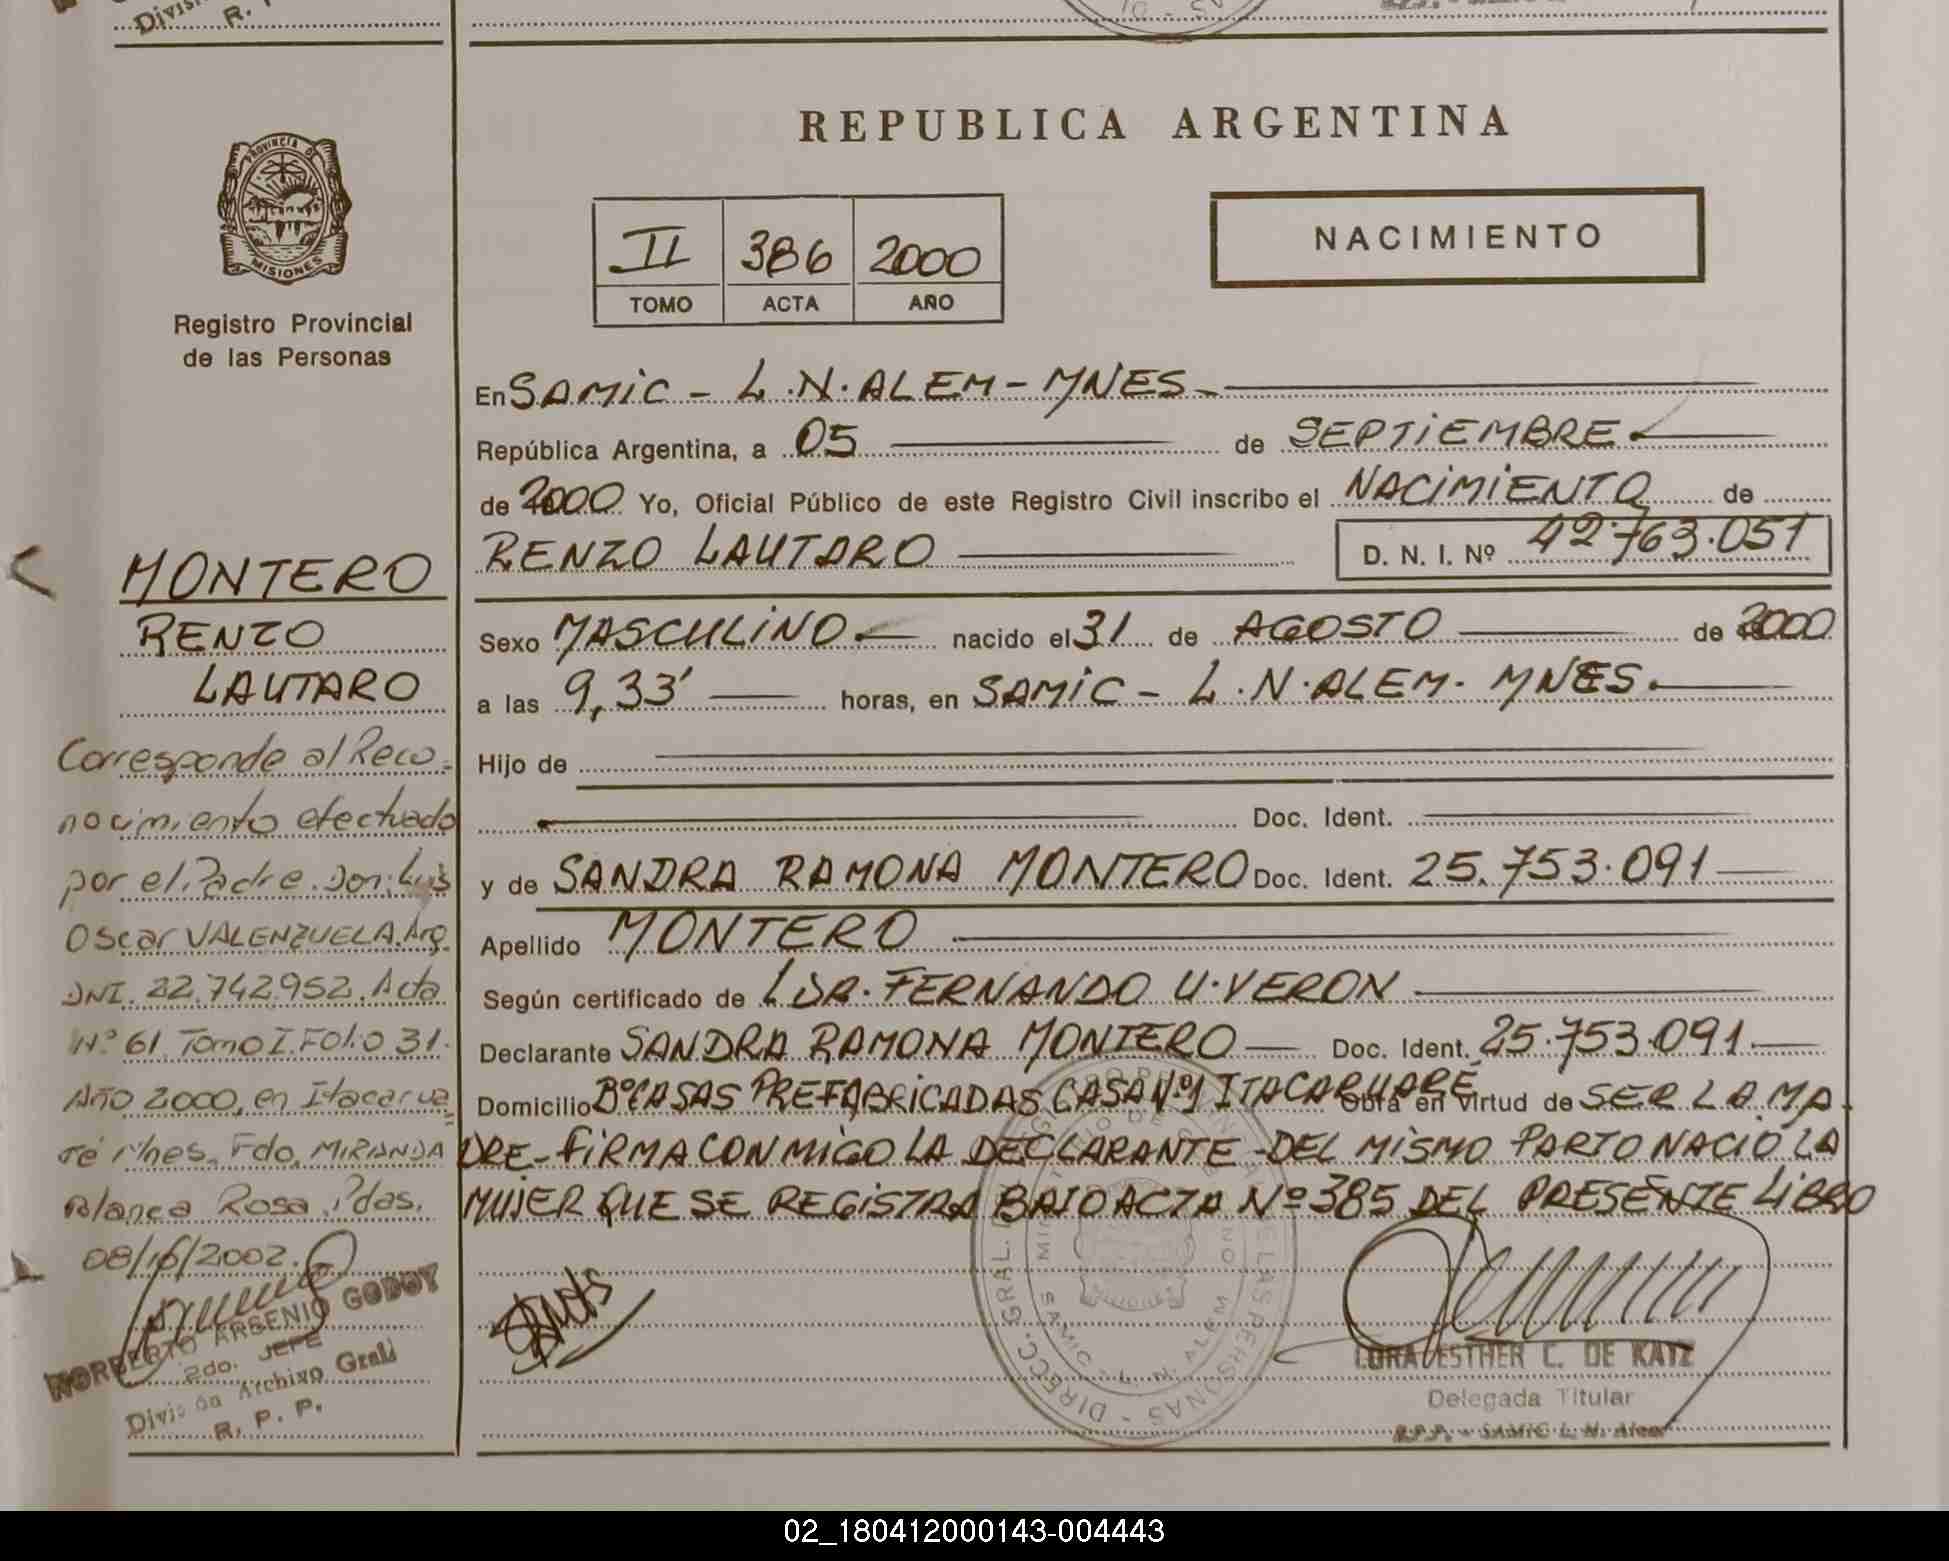 REPUBLICA ARGENTINA
PROVINCIA DE
MISIONES
Registro Provincial
de las Personas
II 386 2000
TOMO ACTA AÑO
NACIMIENTO
En SAMIC - L.N. ALEM - MNES -
República Argentina, a 05 de SEPTIEMBRE
de 2000 Yo, Oficial Público de este Registro Civil inscribo el NACIMIENTO de
RENZO LAUTARO D. N. I. Nº 42.763.051
Sexo MASCULINO.- nacido el 31 de AGOSTO de 2000
a las 9,33' horas, en SAMIC - L.N. ALEM. MNES.
Hijo de
Doc. Ident.
y de SANDRA RAMONA MONTERO Doc. Ident. 25.753.091
Apellido MONTERO
Según certificado de FERNANDO U. VERON
Declarante SANDRA RAMONA MONTERO Doc. Ident. 25.753.091
Domicilio Bº CASAS PREFABRICADAS CASA Nº1 ITACARUARÉ Obra en virtud de SER LA MA-
DRE - FIRMA CONMIGO LA DECLARANTE - DEL MISMO PARTO NACIO LA
MUJER QUE SE REGISTRA BAJO ACTA Nº 385 DEL PRESENTE LIBRO
LORA ESTHER C. DE KATZ
Delegada Titular
R.P.P. - SAMIC L. N. Alem
MONTERO
RENZO
LAUTARO
Corresponde al Reco-
nocimiento efectuado
por el Padre Don: Luis
Oscar VALENZUELA. Arg.
DNI. 22.742.952. Acta
Nº 61. Tomo I. Folio 31.
Año 2000, en Itacarua-
ré Mnes. Fdo. MIRANDA
Blanca Rosa. Pdas.
08/16/2002.
NORBERTO ARSENIO GODOY
2do. JEFE
División Archivo Gral
R. P. P.
02_180412000143-004443